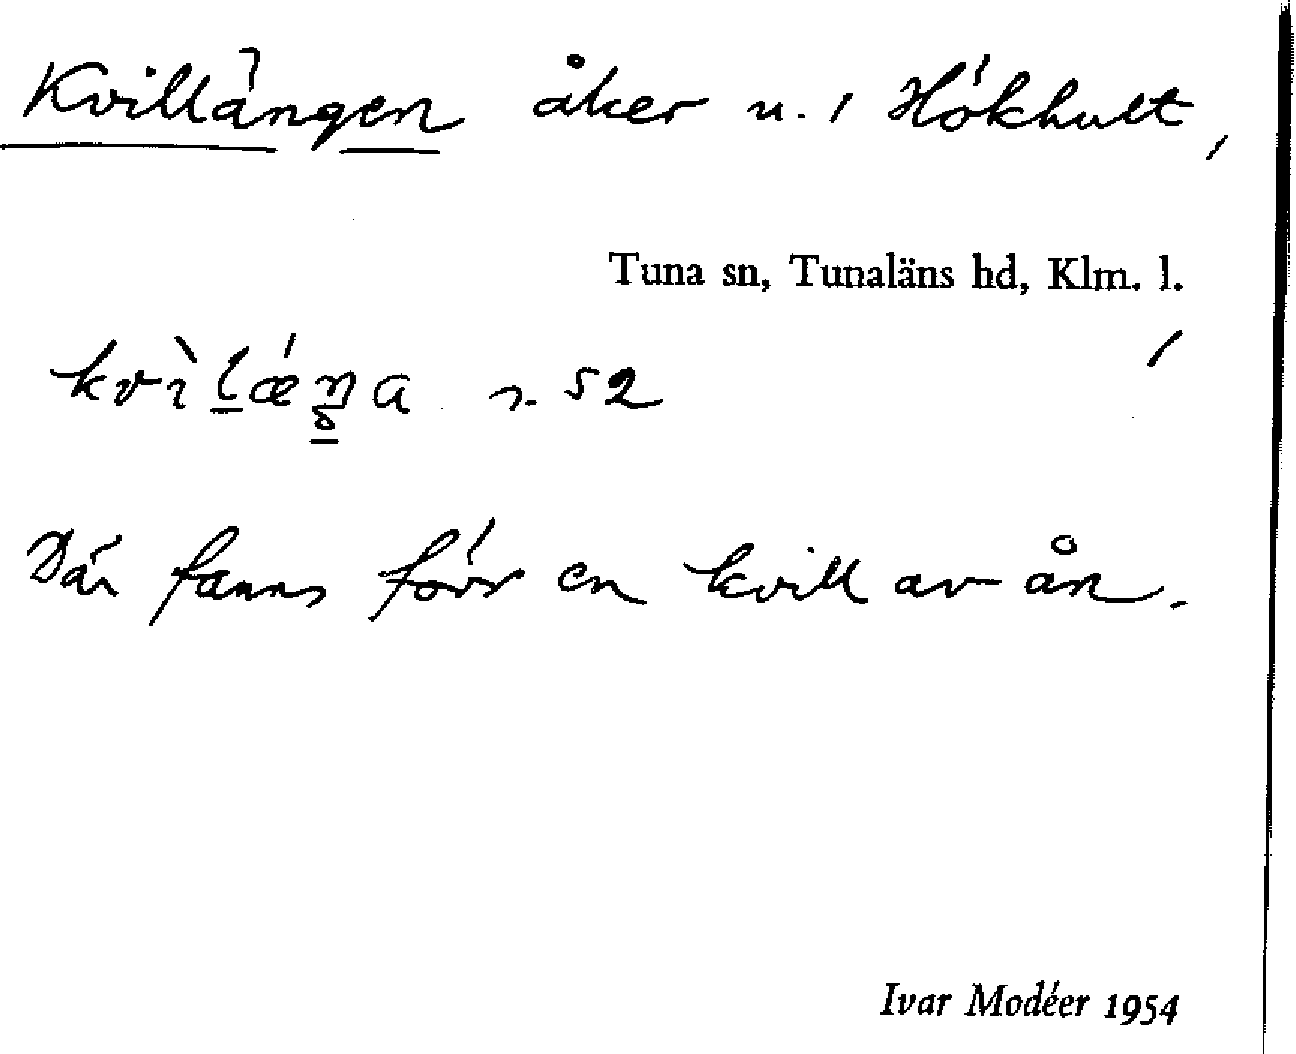 Kvillängen åker u. / Hökhult,
Tuna sn, Tunaläns hd, Klm. l.
s. 52
Där fanns förr en kvill av ån.
Ivar Modéer 1954